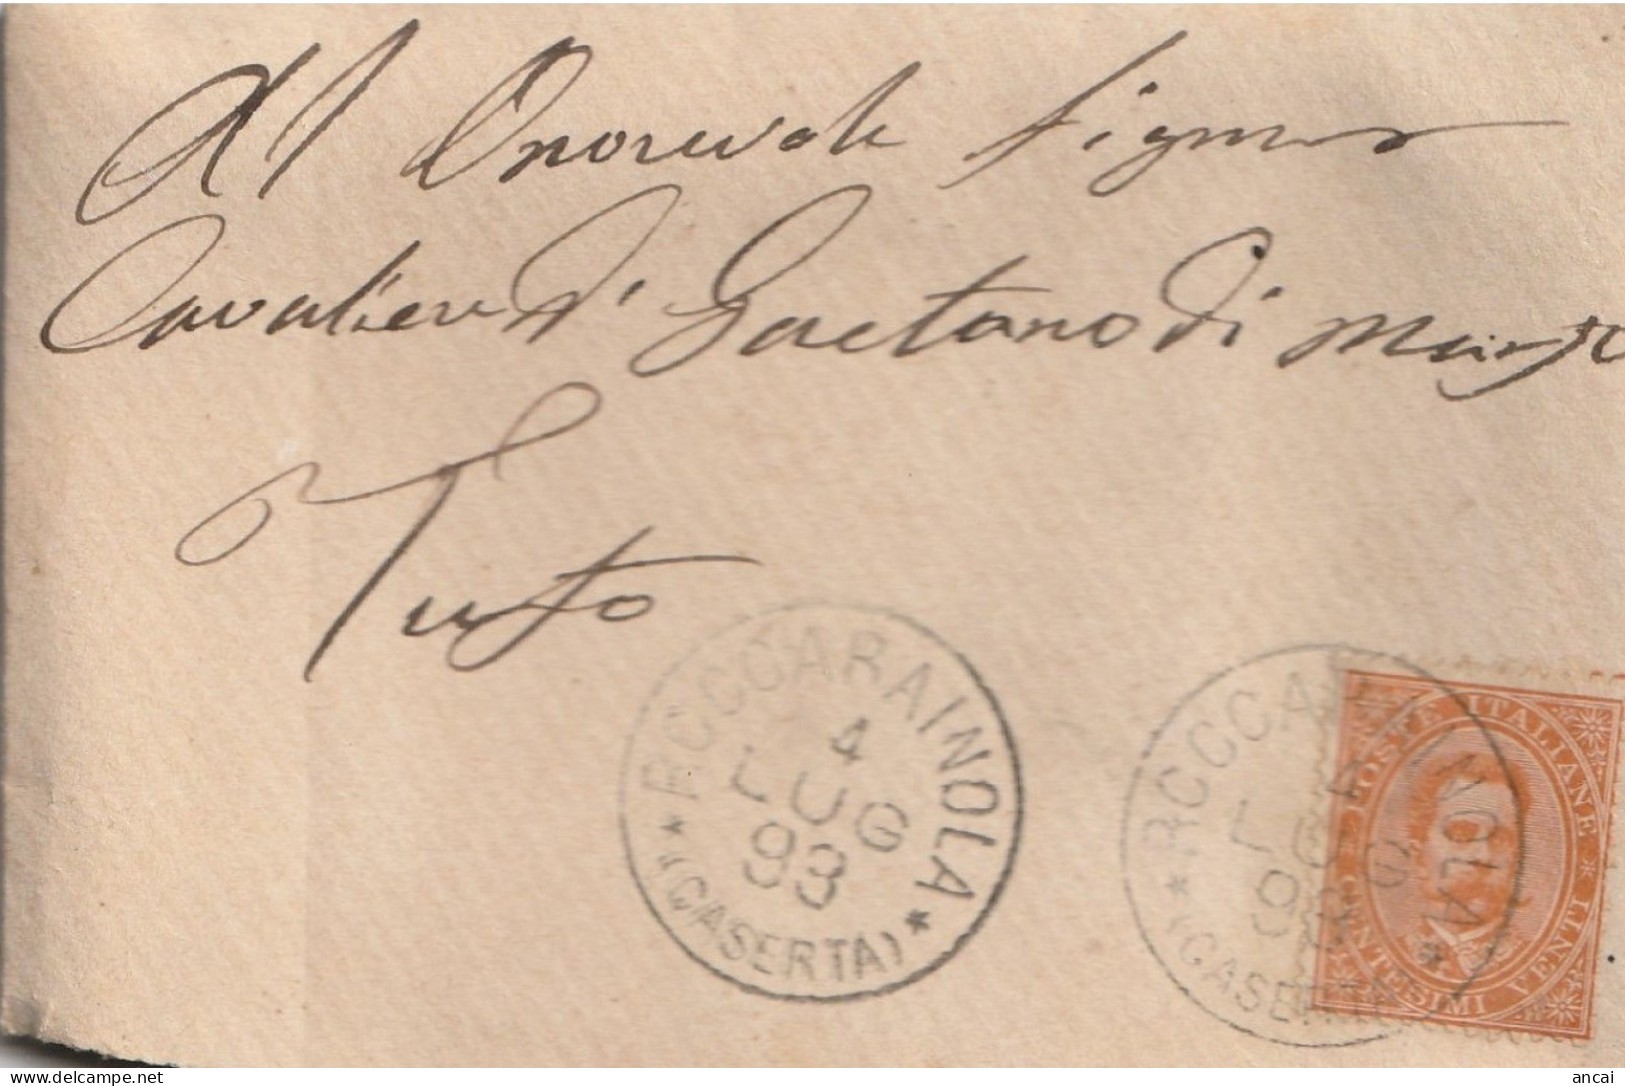 Al Onorevole Signor
Cavaliere D' Gaetano di Marzo
Tufo
ROCCARAINOLA
4
LUG
93
* (CASERTA) *
ROCCARAINOLA
4
LUG
93
* (CASERTA)
*
POSTE ITALIANE * VENTI
CENTESIMI VENTI
delcampe.net
ancai